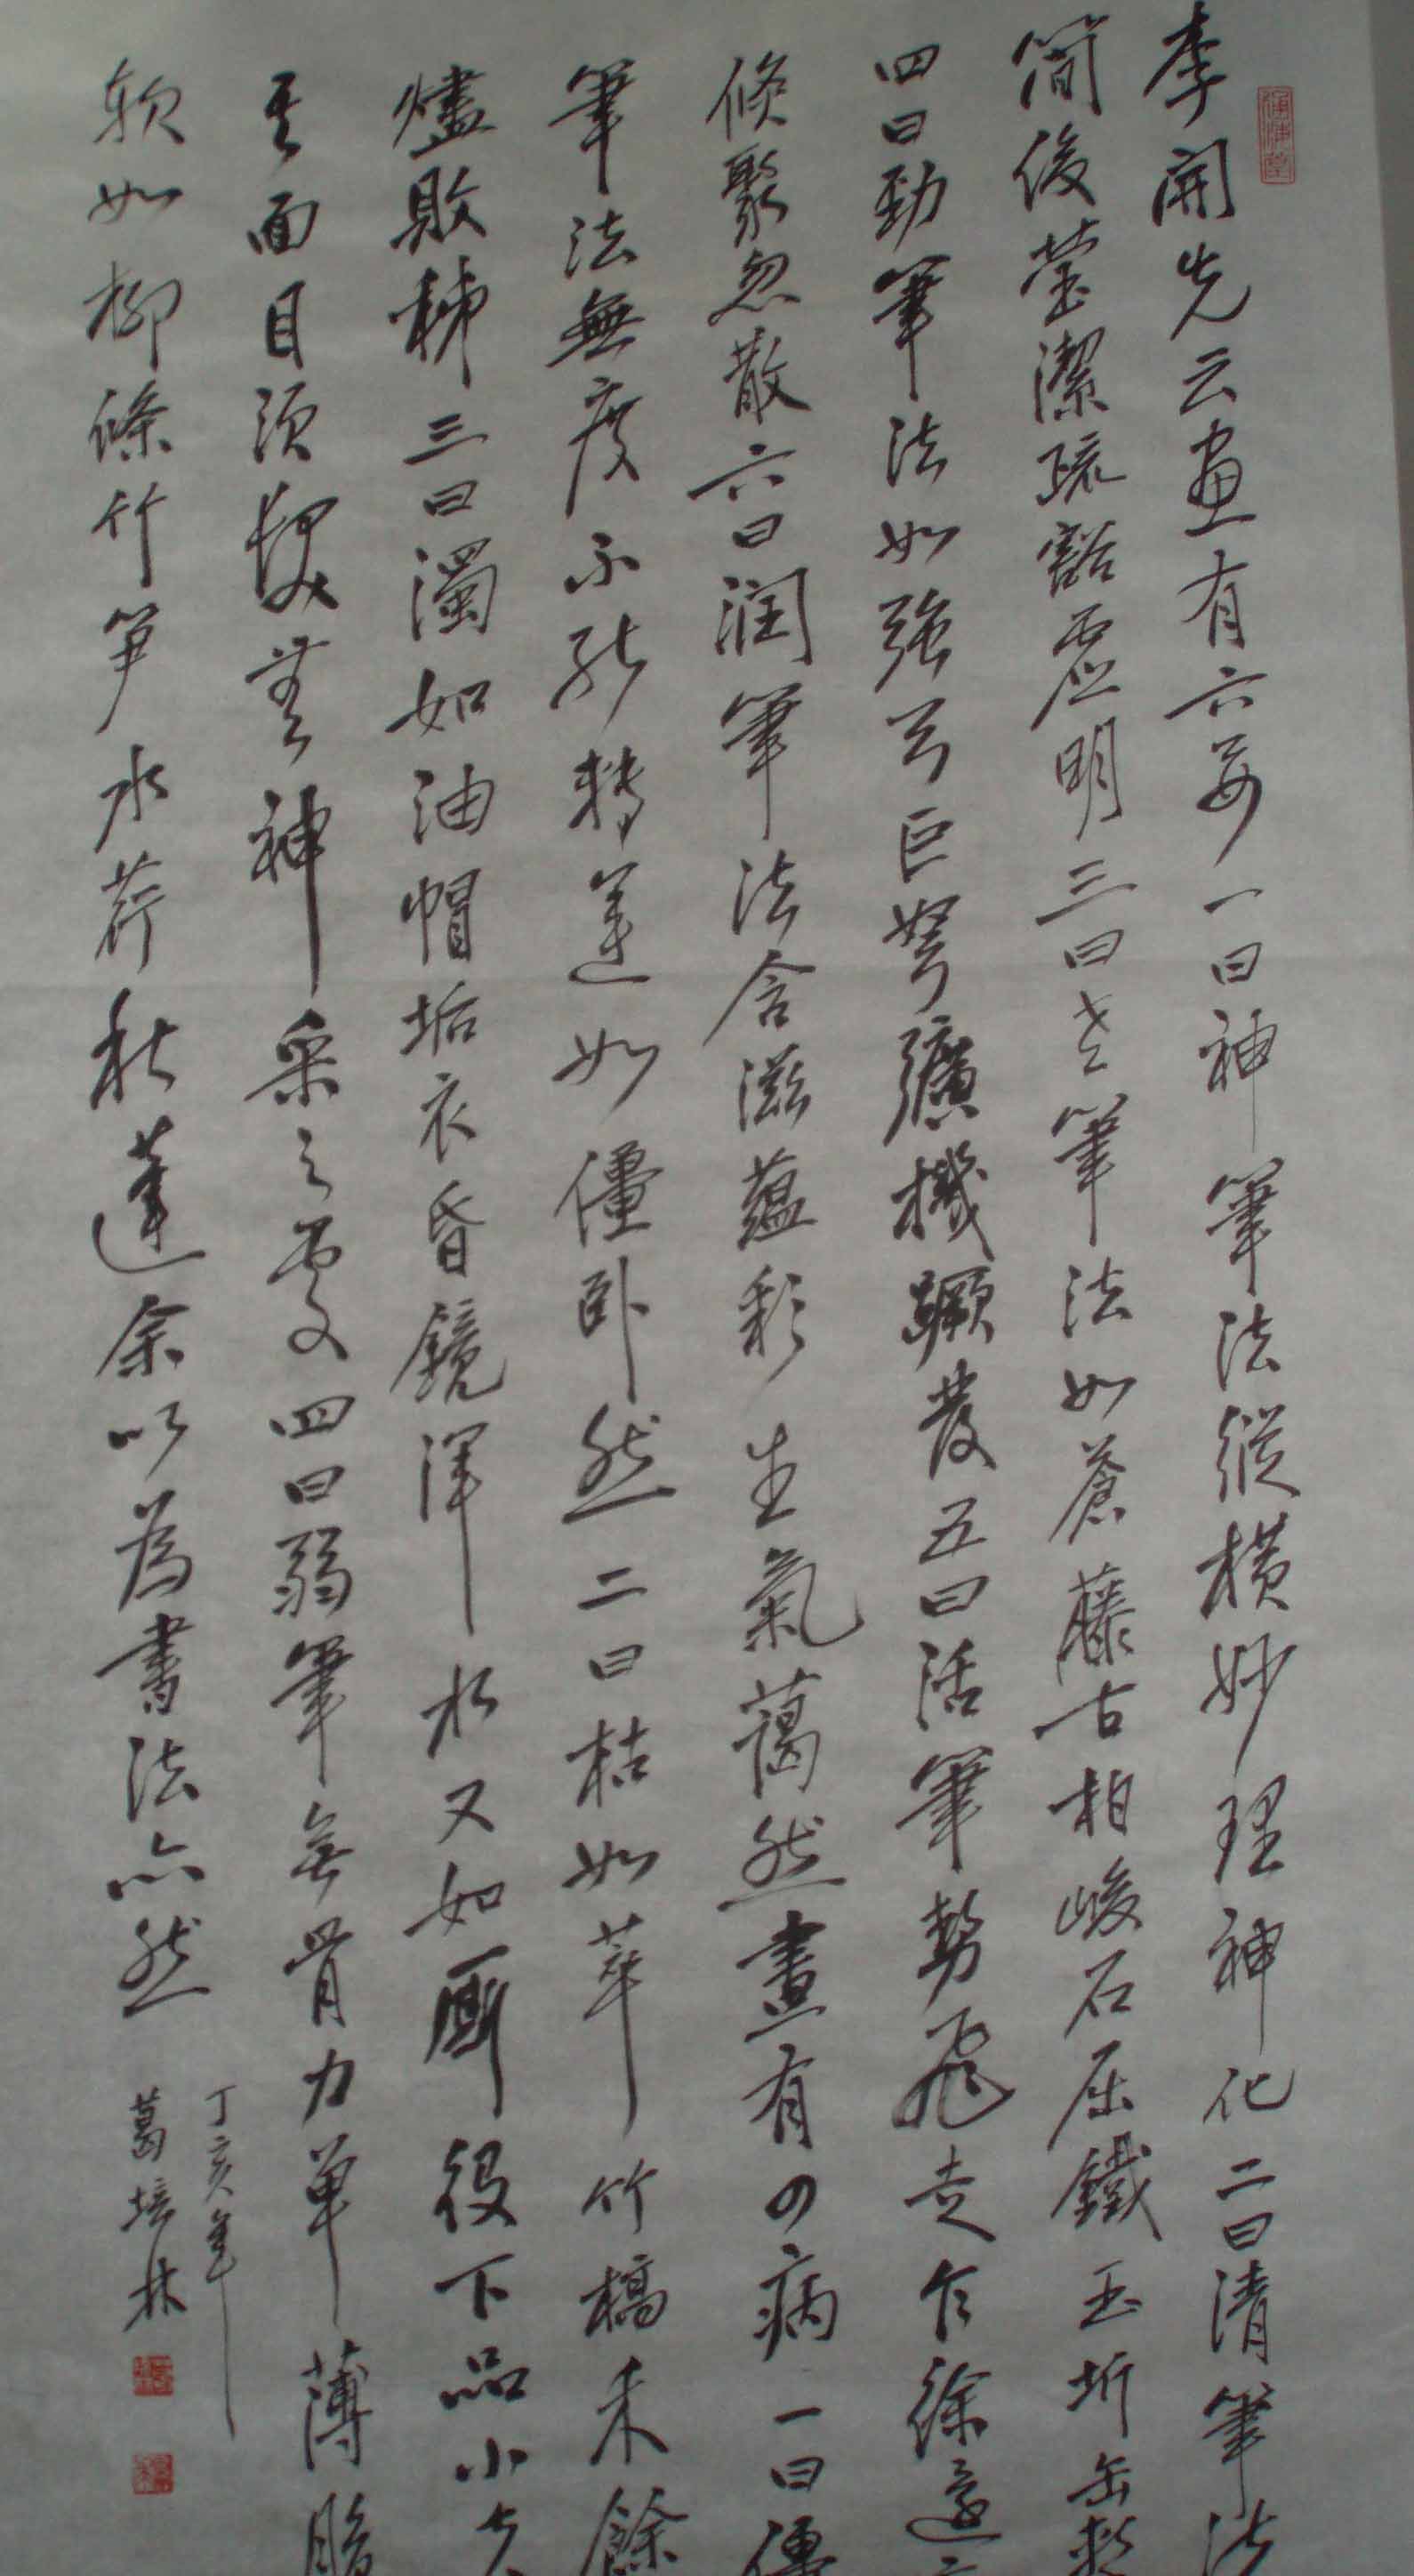 李開先云画有六要一曰神筆法縱橫妙理神化二曰清筆法
简俊莹潔疏豁虚明三曰老筆法如蒼藤古柏峻石屈鐵玉坼缶
四曰勁筆法如強弓巨弩彍機蹶發五曰活筆筆勢飛走乍徐還
倏聚忽散六曰润筆法含滋蘊彩生氣藹然畫有四病一曰僵
筆法無度不能轉運如僵卧然二曰枯如萃竹槁禾餘
燼敗秭三曰濁如油帽垢衣昏鏡渾水又如厮役下品小夫
其面目須髮無神采之處又四曰弱筆無骨力单薄脆
软如柳條竹笋水荇秋蓬余以為書法亦然
丁亥年
葛培林